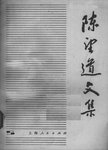 陈望道文集
上海人民出版社